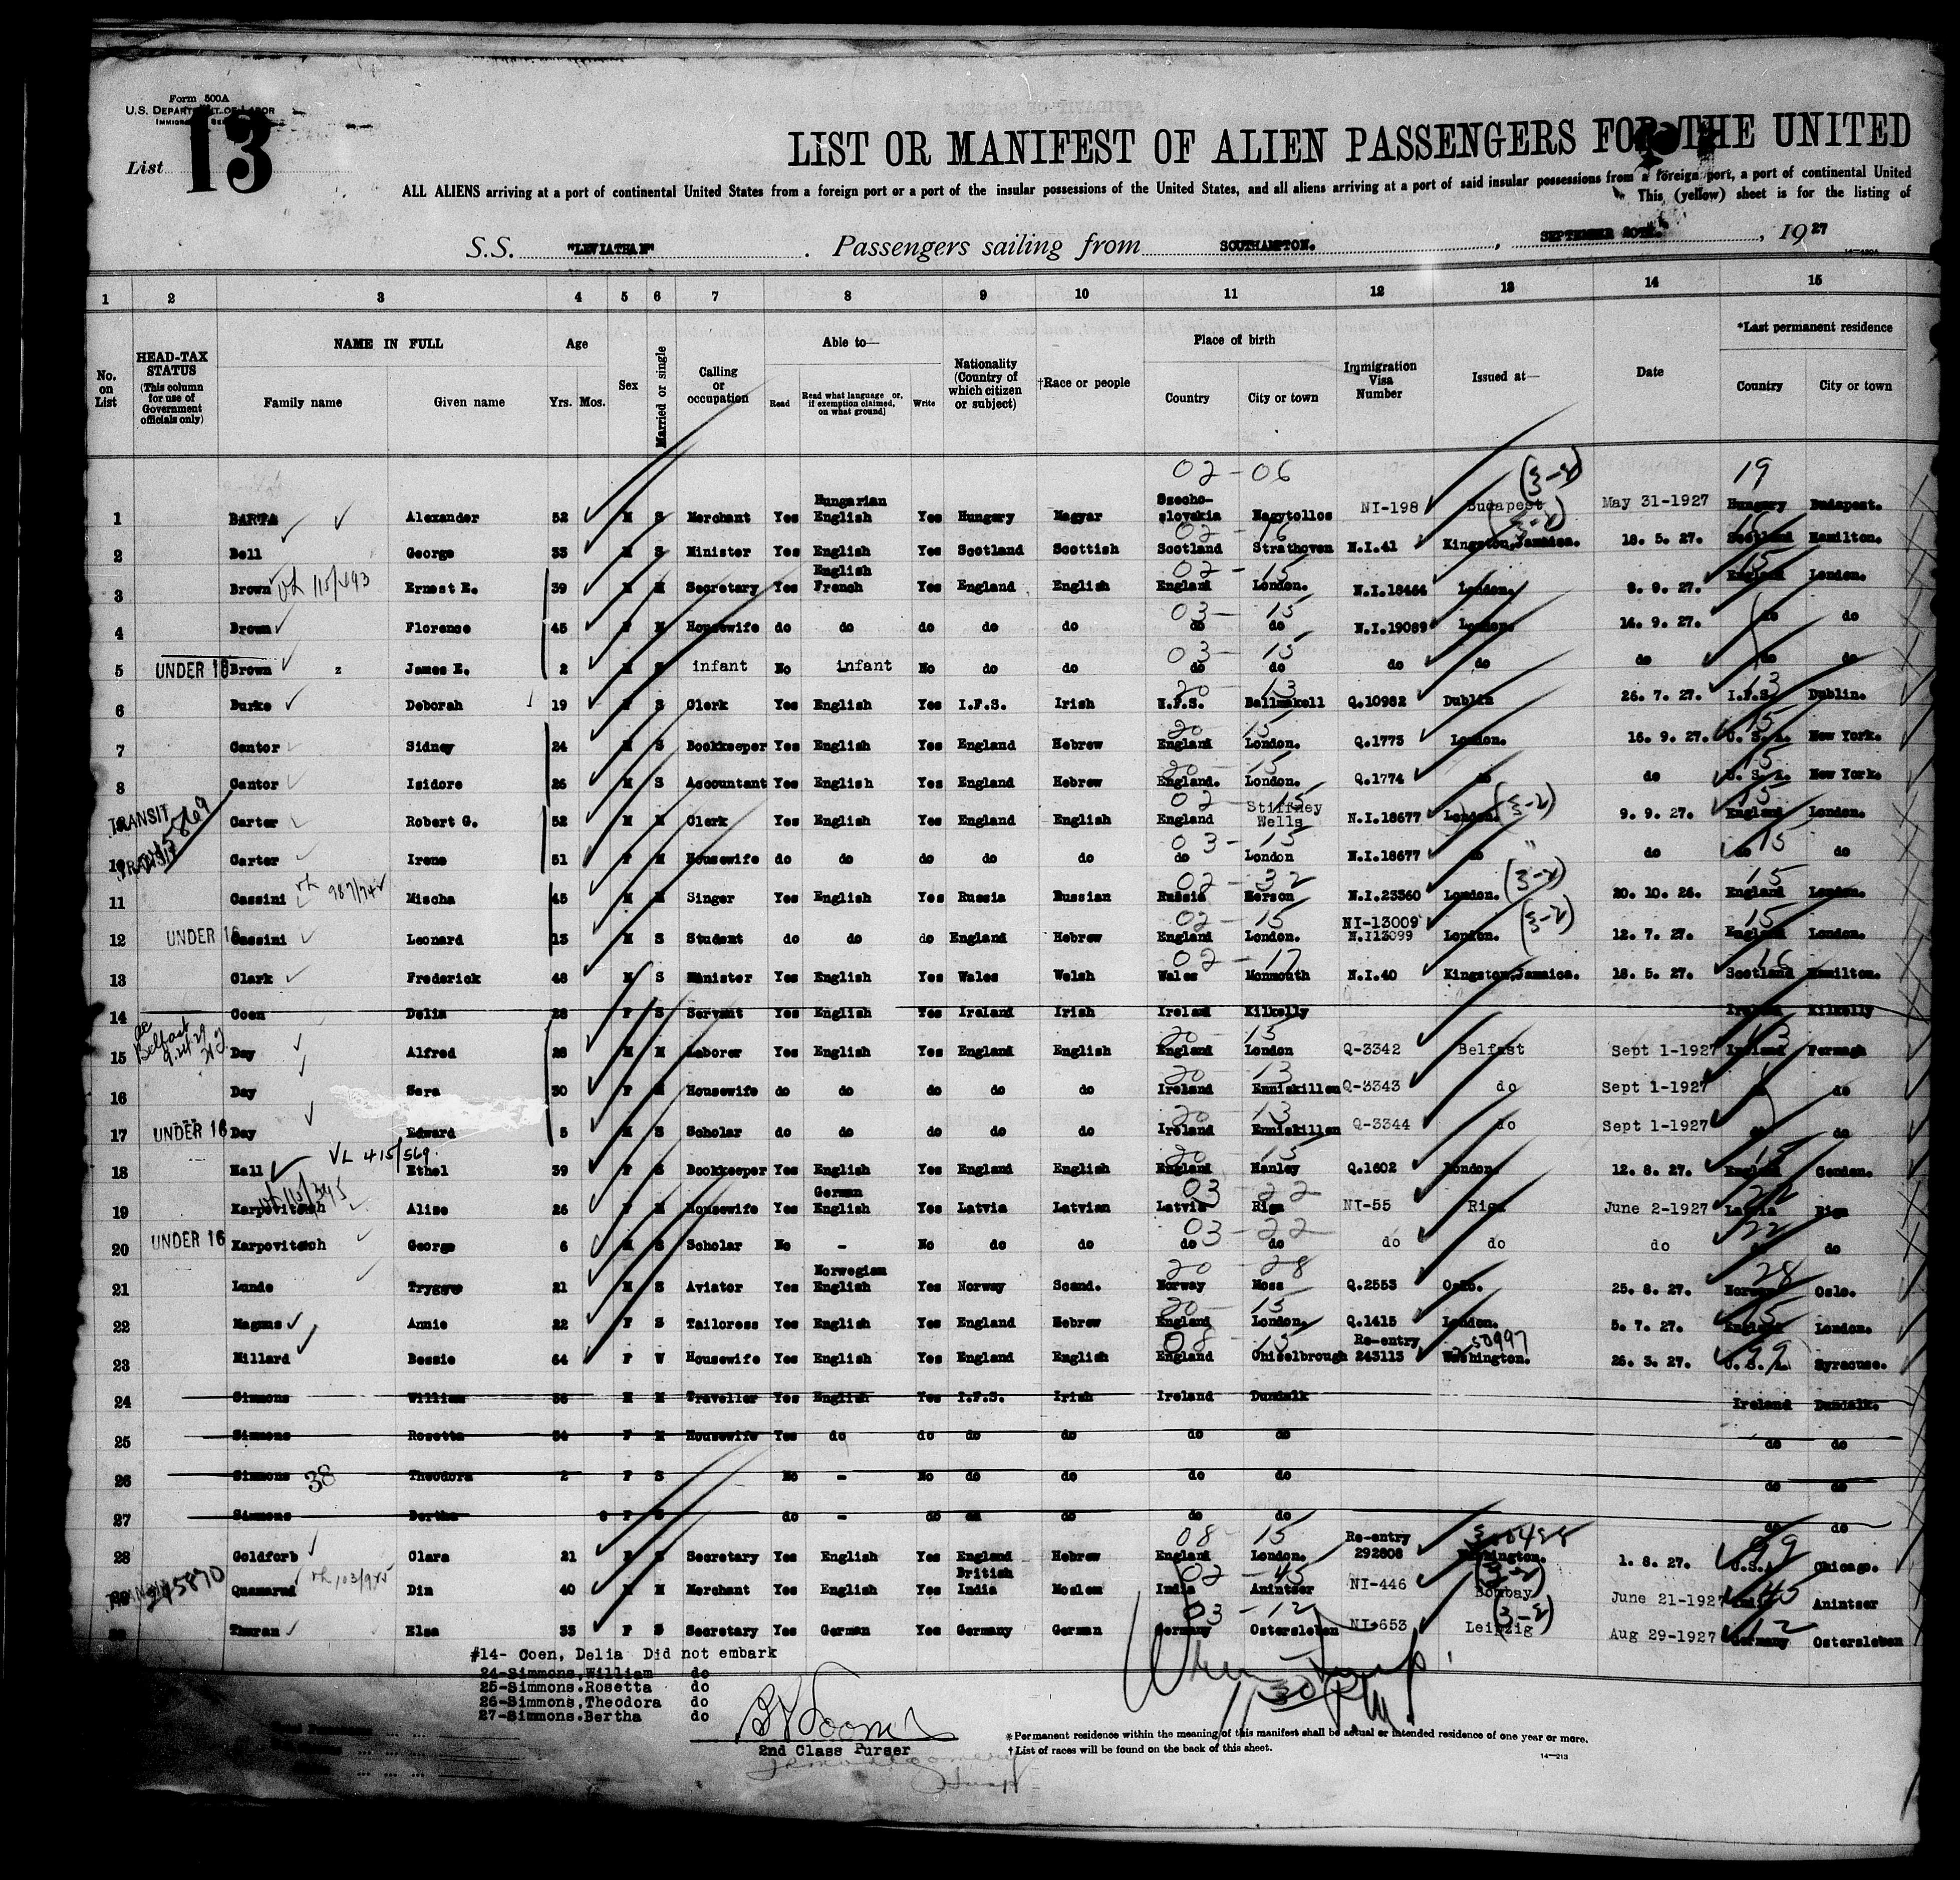 Form 500A
U.S. DEPARTMENT OF LABOR
List 13
LIST OR MANIFEST OF ALIEN PASSENGERS FOR THE UNITED
ALL ALIENS arriving at a port of continental United States from a foreign port or a port of the insular possessions of the United States, and all aliens arriving at a port of said insular possessions from a foreign port, a port of continental United
This (yellow) sheet is for the listing of
S.S. "LEVIATHAN" . Passengers sailing from SOUTHAMPTON. , SEPTEMBER 20TH. , 1927
1 2 3 4 5 6 7 8 9 10 11 12 13 14 15
No. on List
HEAD-TAX STATUS (This column for use of Government officials only)
NAME IN FULL Family name Given name
Age Yrs. Mos.
Sex
Married or single
Calling or occupation
Able to— Read Read what language or, if exemption claimed, on what ground) Write
Nationality (Country of which citizen or subject)
†Race or people
Place of birth Country City or town
Immigration Visa Number
Issued at—
Date
*Last permanent residence Country City or town
02-06 (3-2) 19
1 BARTA Alexander 52 M S Merchant Yes Hungarian English Yes Hungary Magyar Szecho-slovakia Nagytollos NI-198 Budapest May 31-1927 Hungary Budapest.
02-16 (3-2)
2 Bell George 33 M S Minister Yes English Yes Scotland Scottish Scotland Strathoven N.I.41 Kingston,Jamaica. 18. 5. 27. Scotland Hamilton.
02-15 15
3 Brown Ernest E. 39 M M Secretary Yes English French Yes England English England London. N.I.18464 London. 8. 9. 27. England London.
03-15
4 Brown Florence 45 F M Housewife do do do do do do do N.I.19089 London. 14. 9. 27. do do
03-15
5 UNDER 16 Brown z James E. 2 M S infant No infant No do do do do do do do do do
20-13 13
6 Burke Deborah 19 F S Clerk Yes English Yes I.F.S. Irish I.F.S. Ballmakell Q.10982 Dublin 26. 7. 27. I.F.S. Dublin.
20-15 15
7 Cantor Sidney 24 M S Bookkeeper Yes English Yes England Hebrew England London. Q.1773 London. 16. 9. 27. U. S. A. New York.
20-15 15
8 Cantor Isidore 26 M S Accountant Yes English Yes England Hebrew England. London. Q.1774 do do U. S. A. New York.
02-15 (3-2) 15
TRANSIT Carter Robert G. 52 M M Clerk Yes English Yes England English England Stiffney Wells N.I.18677 London. 9. 9. 27. England London.
03-15 15
10 TRANSIT Carter Irene 51 F M Housewife do do do do do do London N.I.18677 do do do do
02-32 (3-2) 15
11 Cassini Mischa 45 M M Singer Yes English Yes Russia Russian Russia Herson N.I.23360 London. 20. 10. 26. England London.
02-15 (3-2) 15
12 UNDER 16 Cassini Leonard 13 M S Student do do do England Hebrew England London. NI-13009 N.I13099 London. 12. 7. 27. England London.
02-17 16
13 Clark Frederick 48 M S Minister Yes English Yes Wales Welsh Wales Monmouth N.I.40 Kingston,Jamaica. 18. 5. 27. Scotland Hamilton.
14 Coen Delia 28 F S Servant Yes English Yes Ireland Irish Ireland Kilkelly Ireland Kilkelly
Belfast
20-13 13
15 Day Alfred 28 M M Laborer Yes English Yes England English England London Q-3342 Belfast Sept 1-1927 Ireland Fermagh
20-13
16 Day Sara 30 F M Housewife do do do do do Ireland Enniskillen Q-3343 do Sept 1-1927 do
20-13
17 UNDER 16 Day Edward 5 M S Scholar do do do do do Ireland Enniskillen Q-3344 do Sept 1-1927 do do
VL 415/569. 20-15 15
18 Hall Ethel 39 F S Bookkeeper Yes English Yes England English England Hanley Q.1602 London. 12. 8. 27. England London.
03-22 22
19 Karpovitsch Alise 26 F M Housewife Yes German English Yes Latvia Latvian Latvia Riga NI-55 Riga June 2-1927 Latvia Riga
03-22 22
20 UNDER 16 Karpovitsch George 6 M S Scholar No - No do do do do do do do do do
20-28 28
21 Lunde Trygve 21 M S Aviator Yes Norwegian English Yes Norway Scand. Norway Moss Q.2553 Oslo. 25. 8. 27. Norway Oslo.
20-15 15
22 Magnus Annie 22 F S Tailoress Yes English Yes England Hebrew England London. Q.1415 London. 5. 7. 27. England London.
08-15 50997 99
23 Millard Bessie 64 F W Housewife Yes English Yes England English England Chiselbrough Re-entry 243113 Washington. 26. 3. 27. U. S. A. Syracuse.
24 Simmons William 38 M M Traveller Yes English Yes I.F.S. Irish Ireland Dundalk Ireland Dundalk.
25 Simmons Rosetta 34 F M Housewife Yes do do do do do do do do
26 Simmons 38 Theodora 2 F S No - No do do do do do do
27 Simmons Bertha 8 F S do - do do do do do do do
08-15 99
28 Goldforb Clara 21 F S Secretary Yes English Yes England Hebrew England London. Re-entry 292808 Washington. 1. 8. 27. U.S.A. Chicago.
245870 02-45 (3-2) 45
Quamarud Din 40 M M Merchant Yes English Yes British India Moslem India Amintser NI-446 Bombay June 21-1927 Amintser
03-12 (3-2) 12
Thuran Elsa 33 F S Secretary Yes German Yes Germany German Germany Ostersleben NI-653 Leipzig Aug 29-1927 Germany Ostersleben
#14- Coen, Delia Did not embark
24-Simmons,William do
25-Simmons.Rosetta do
26-Simmons,Theodora do
27-Simmons.Bertha do
2nd Class Purser
*Permanent residence within the meaning of this manifest shall be actual or intended residence of one year or more.
†List of races will be found on the back of this sheet.
14—213